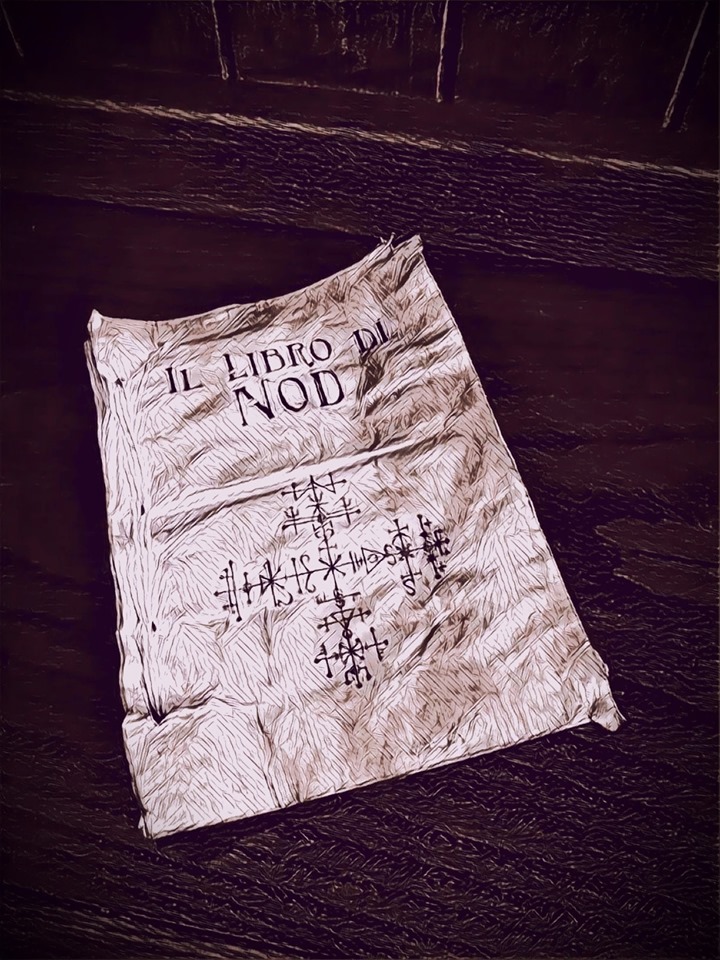 IL LIBRO DI
NOD